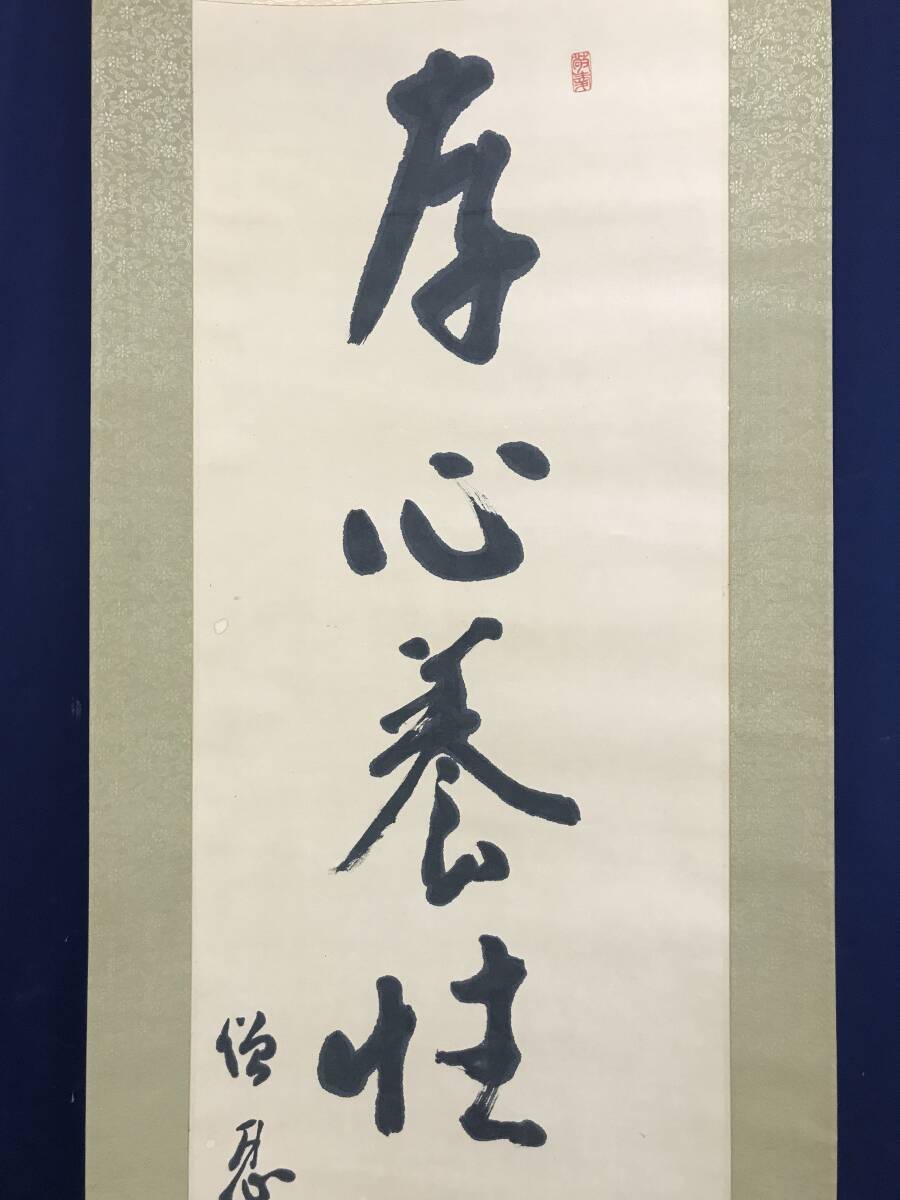 存心養性
僧